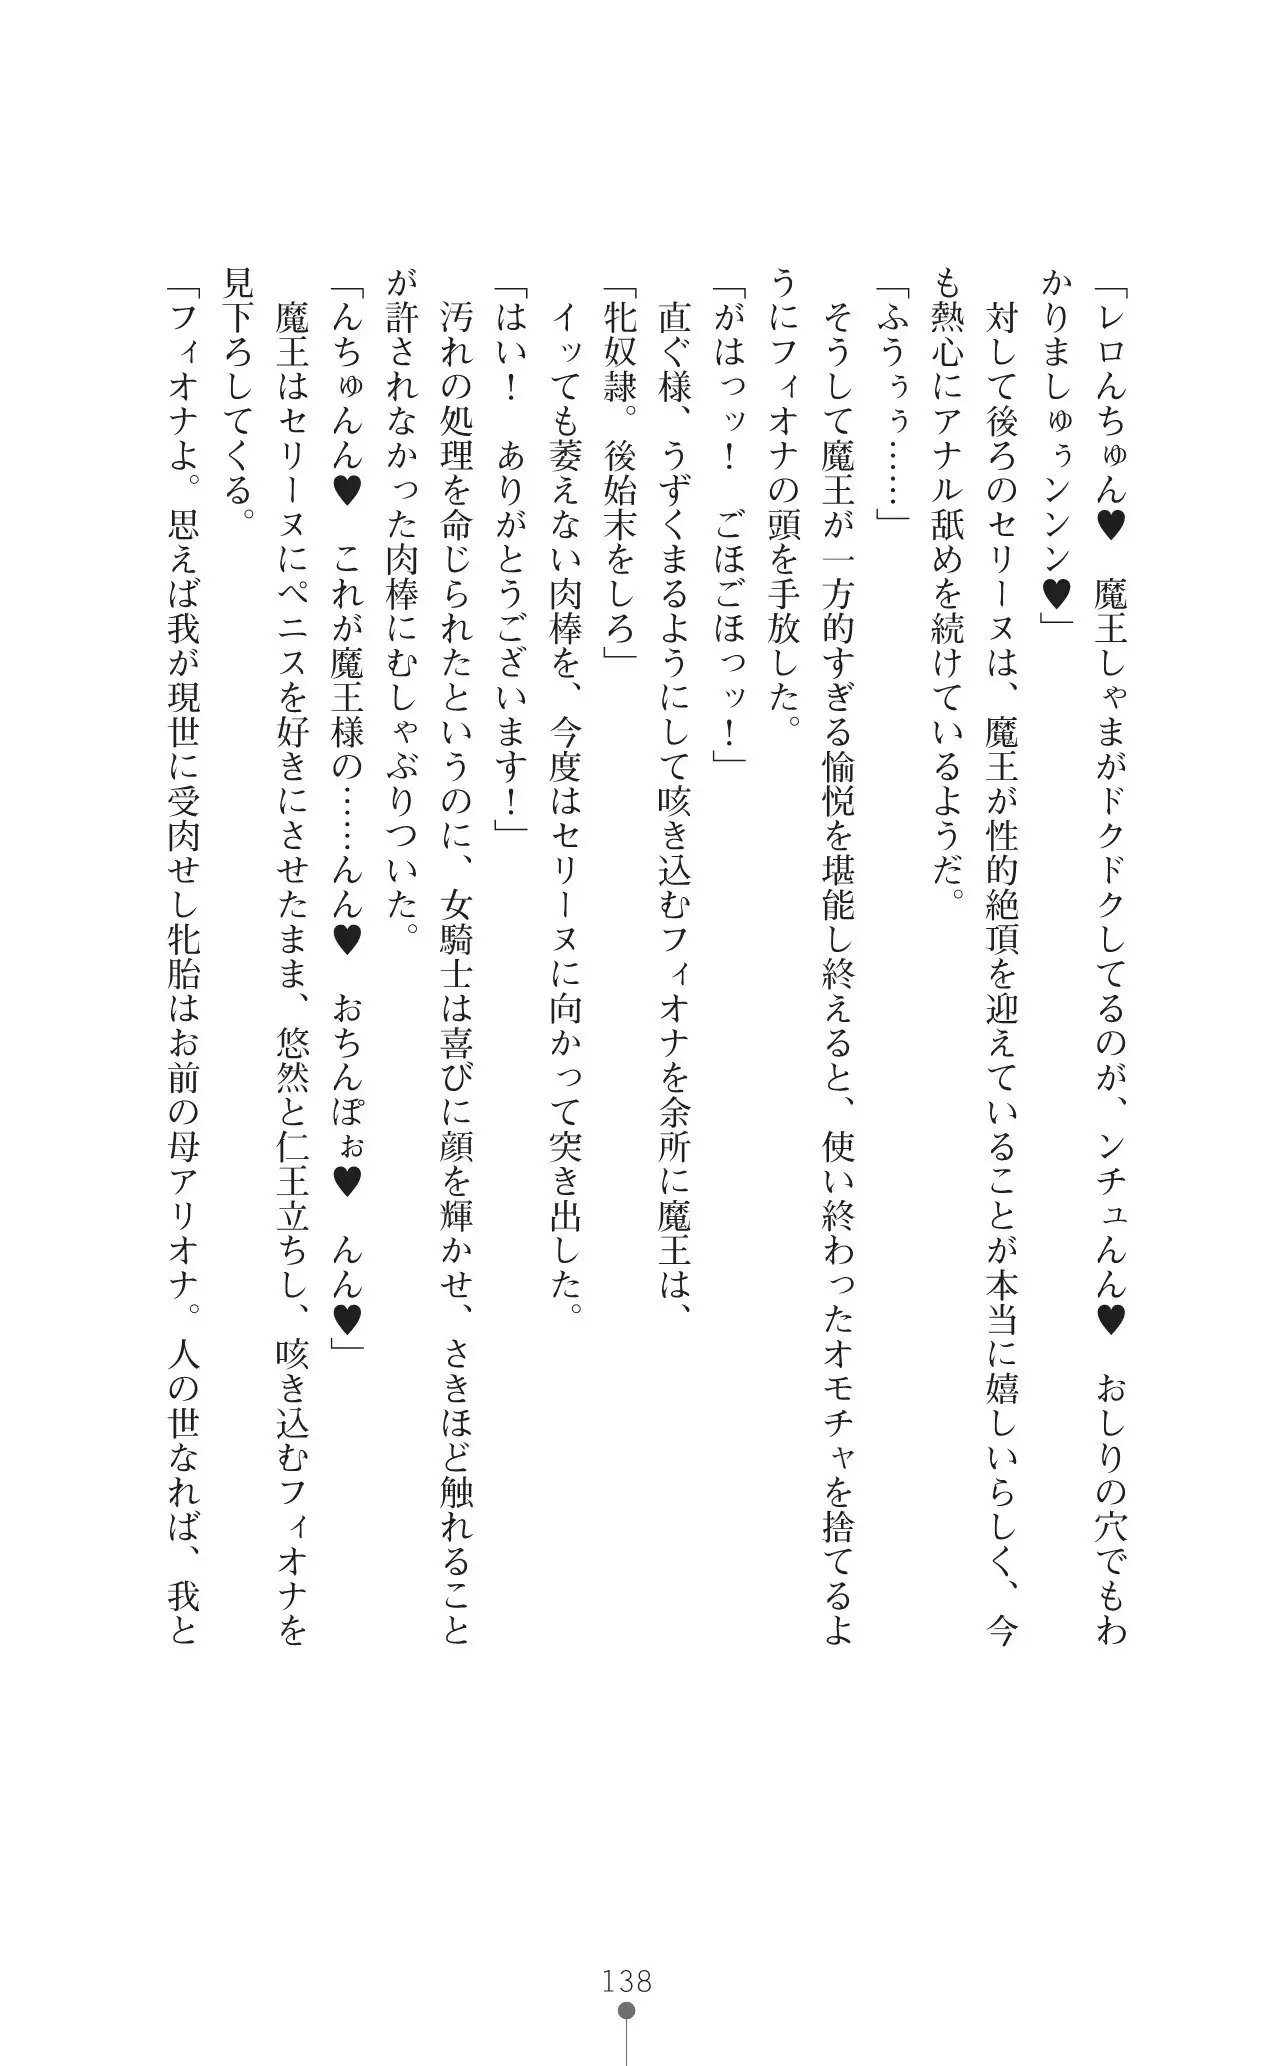 「レロんちゅん♥　魔王しゃまがドクドクしてるのが、ンチュんん♥　おしりの穴でもわ
かりましゅぅンンン♥」
　対して後ろのセリーヌは、魔王が性的絶頂を迎えていることが本当に嬉しいらしく、今
も熱心にアナル舐めを続けているようだ。
「ふうぅぅ……」
　そうして魔王が一方的すぎる愉悦を堪能し終えると、使い終わったオモチャを捨てるよ
うにフィオナの頭を手放した。
「がはっッ！　ごほごほっッ！」
　直ぐ様、うずくまるようにして咳き込むフィオナを余所に魔王は、
「牝奴隷。後始末をしろ」
　イッても萎えない肉棒を、今度はセリーヌに向かって突き出した。
「はい！　ありがとうございます！」
　汚れの処理を命じられたというのに、女騎士は喜びに顔を輝かせ、さきほど触れること
が許されなかった肉棒にむしゃぶりついた。
「んちゅんん♥　これが魔王様の……んん♥　おちんぽぉ♥　んん♥」
　魔王はセリーヌにペニスを好きにさせたまま、悠然と仁王立ちし、咳き込むフィオナを
見下ろしてくる。
「フィオナよ。思えば我が現世に受肉せし牝胎はお前の母アリオナ。人の世なれば、我と
138